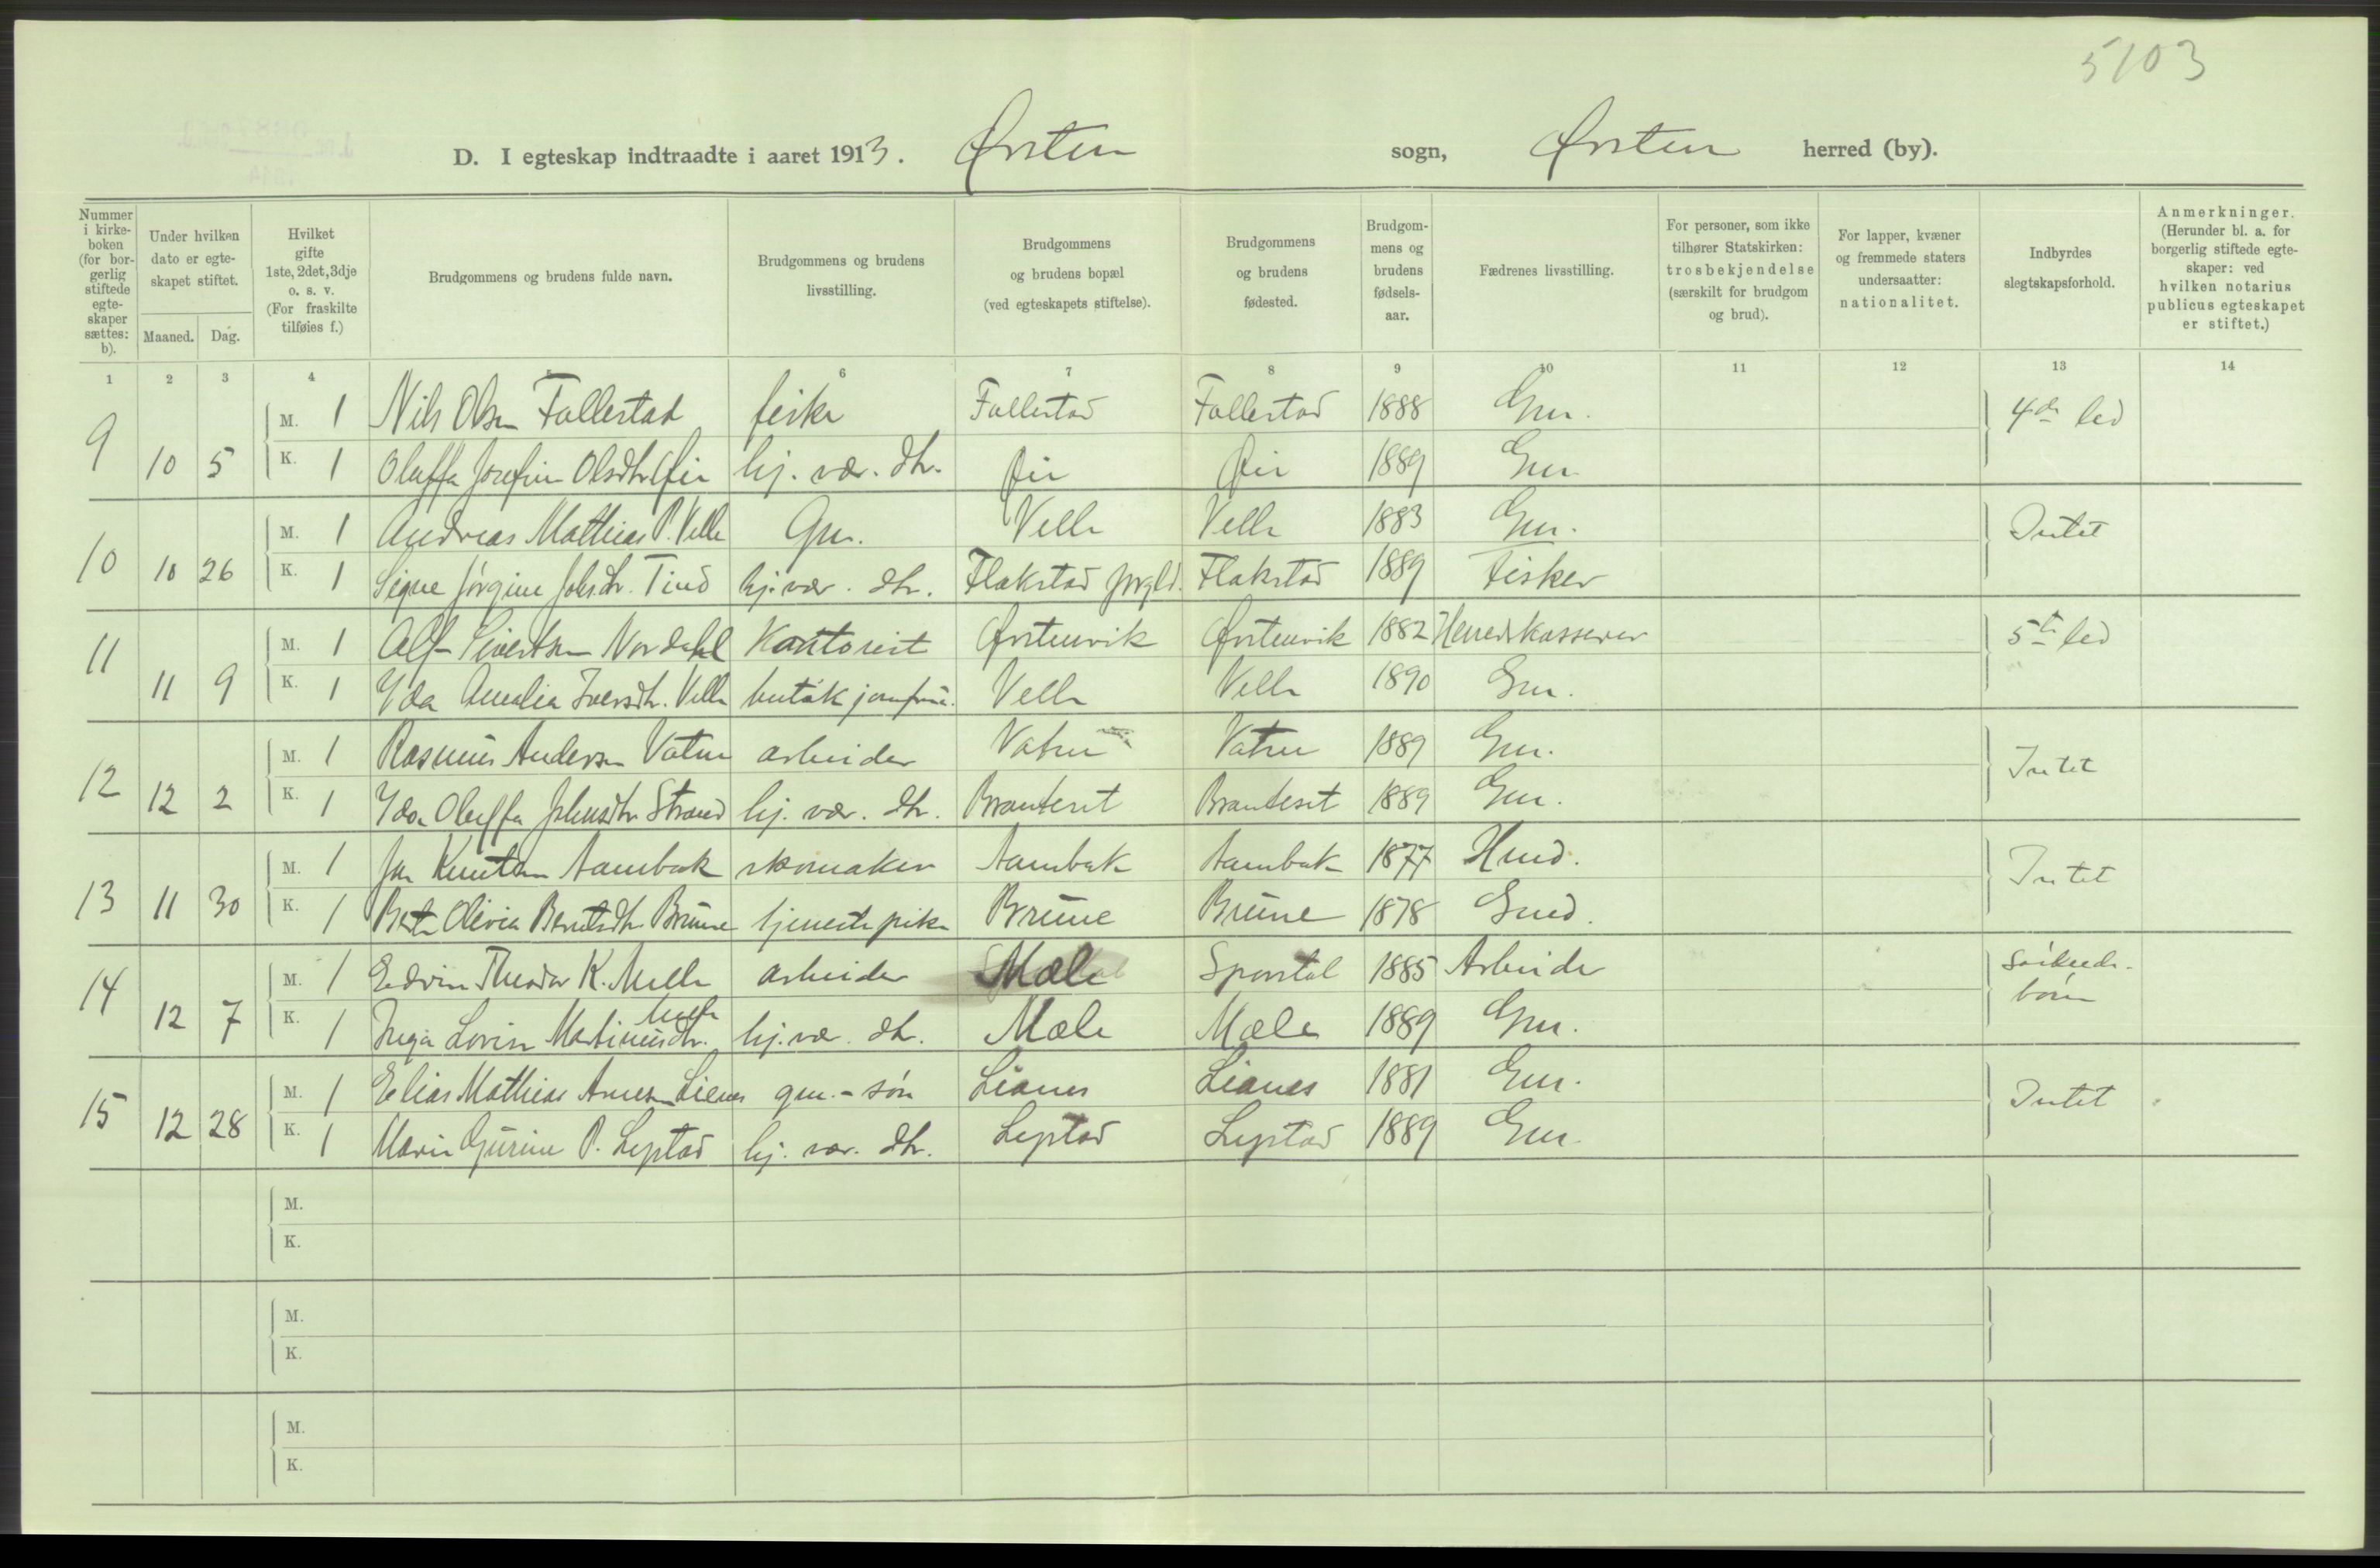 5103
D. I egteskap indtraadte i aaret 1913. Ørsten sogn, Ørsten herred (by).
Nummer i kirkeboken (for borgerlig stiftede egteskaper sættes: b).
Under hvilken dato er egteskapet stiftet.
Maaned. Dag.
Hvilket gifte 1ste, 2det, 3dje o. s. v. (For fraskilte tilføies f.)
Brudgommens og brudens fulde navn.
Brudgommens og brudens livsstilling.
Brudgommens og brudens bopæl (ved egteskapets stiftelse).
Brudgommens og brudens fødested.
Brudgommens og brudens fødselsaar.
Fædrenes livsstilling.
For personer, som ikke tilhører Statskirken: trosbekjendelse (særskilt for brudgom og brud).
For lapper, kvæner og fremmede staters undersaatter: nationalitet.
Indbyrdes slegtskapsforhold.
Anmerkninger. (Herunder bl. a. for borgerlig stiftede egteskaper: ved hvilken notarius publicus egteskapet er stiftet.)
1 2 3 4 5 6 7 8 9 10 11 12 13 14
9 M. 1 Nils Olsen Follestad fisker Follestad Follestad 1888 Gm. 4de led
10 5 K. 1 Oluffa Josefine Olsdtr Øie hj. vær. dtr. Øie Øie 1889 Gm.
10 M. 1 Andreas Mathias P. Velle Gm. Velle Velle 1883 Gm. Intet
10 26 K. 1 Signe Jørgine Johsdtr. Tind hj. vær. dtr. Flakstad Flakstad 1889 Fisker
11 M. 1 Alf Sivertsen Nordahl Kontorist Ørstenvik Ørstenvik 1882 Herredskasserer 5te led
11 9 K. 1 Yda Amalia Iversdtr. Velle butikjomfru. Velle Velle 1890 Gm.
12 M. 1 Rasmus Andersen Vatne arbeider Vatne Vatne 1889 Gm. Intet
12 2 K. 1 Yda Oluffa Johnsdtr Strand hj. vær. dtr. Brauteset Brauteset 1889 Gm.
13 M. 1 Jon Knutsen Aambak skomaker Aambak Aambak 1877 Hmd. Intet
11 30 K. 1 Olivia Berntsdtr Brune tjenestepike Brune Brune 1878 Gmd.
14 M. 1 Edvin Theodor K. Melle arbeider Mæle 1885 Arbeider Søskendebørn
12 7 K. 1 Inga Lovise Martinusdtr. Melle hj. vær. dtr. Mæle Mæle 1889 Gm.
15 M. 1 Elias Mathias Lianes gm. - søn Lianes Lianes 1881 Gm. Intet
12 28 K. 1 Marie Gurine P. Leystad hj. vær. dtr. Leystad Leystad 1889 Gm.
M.
K.
M.
K.
M.
K.